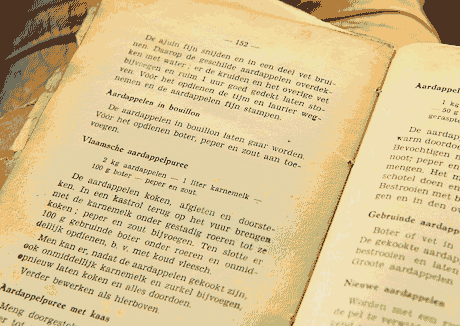 — 152 —
De ajuin fijn snijden en in een deel vet brui-
nen. Daarop de geschilde aardappelen overdek-
ken met water; er de kruiden en het overige vet
bijvoegen en ruim 1 uur goed gedekt laten sto-
ven. Vóór het opdienen de tijm en laurier weg-
nemen en de aardappelen fijn stampen.
Aardappelen in bouillon
De aardappelen in bouillon laten gaar worden.
Vóór het opdienen boter, peper en zout aan toe-
voegen.
Vlaamsche aardappelpuree
2 kg aardappelen — 1 liter karnemelk —
100 g boter — peper en zout.
De aardappelen koken, afgieten en doorste-
ken. In een kastrol terug op het vuur brengen
met de karnemelk onder gestadig roeren tot ze
koken; peper en zout bijvoegen. Ten slotte er
100 g gebruinde boter onder roeren en onmid-
delijk opdienen, b. v. met koud vleesch.
Men kan er, nadat de aardappelen gekookt zijn,
ook onmiddellijk karnemelk en zurkel bijvoegen,
opnieuw laten koken en alles doordoen.
Verder bewerken als hierboven
Aardappelpuree met kaas
Meng doorgestok
Aardappel
1 kg
50 g
geraspte
De aardap
warm doordoe
Bevochtigen m
noot; peper en
mengen. Het m
schotel doen en
Bestrooien met b
gen en in den ov
Gebruinde aardapp
Boter of vet in
De gekookte aardapp
bestrooien en laten
Groote aardappelen
Nieuwe aardappelen
Worden met een r
de pel te verwijd